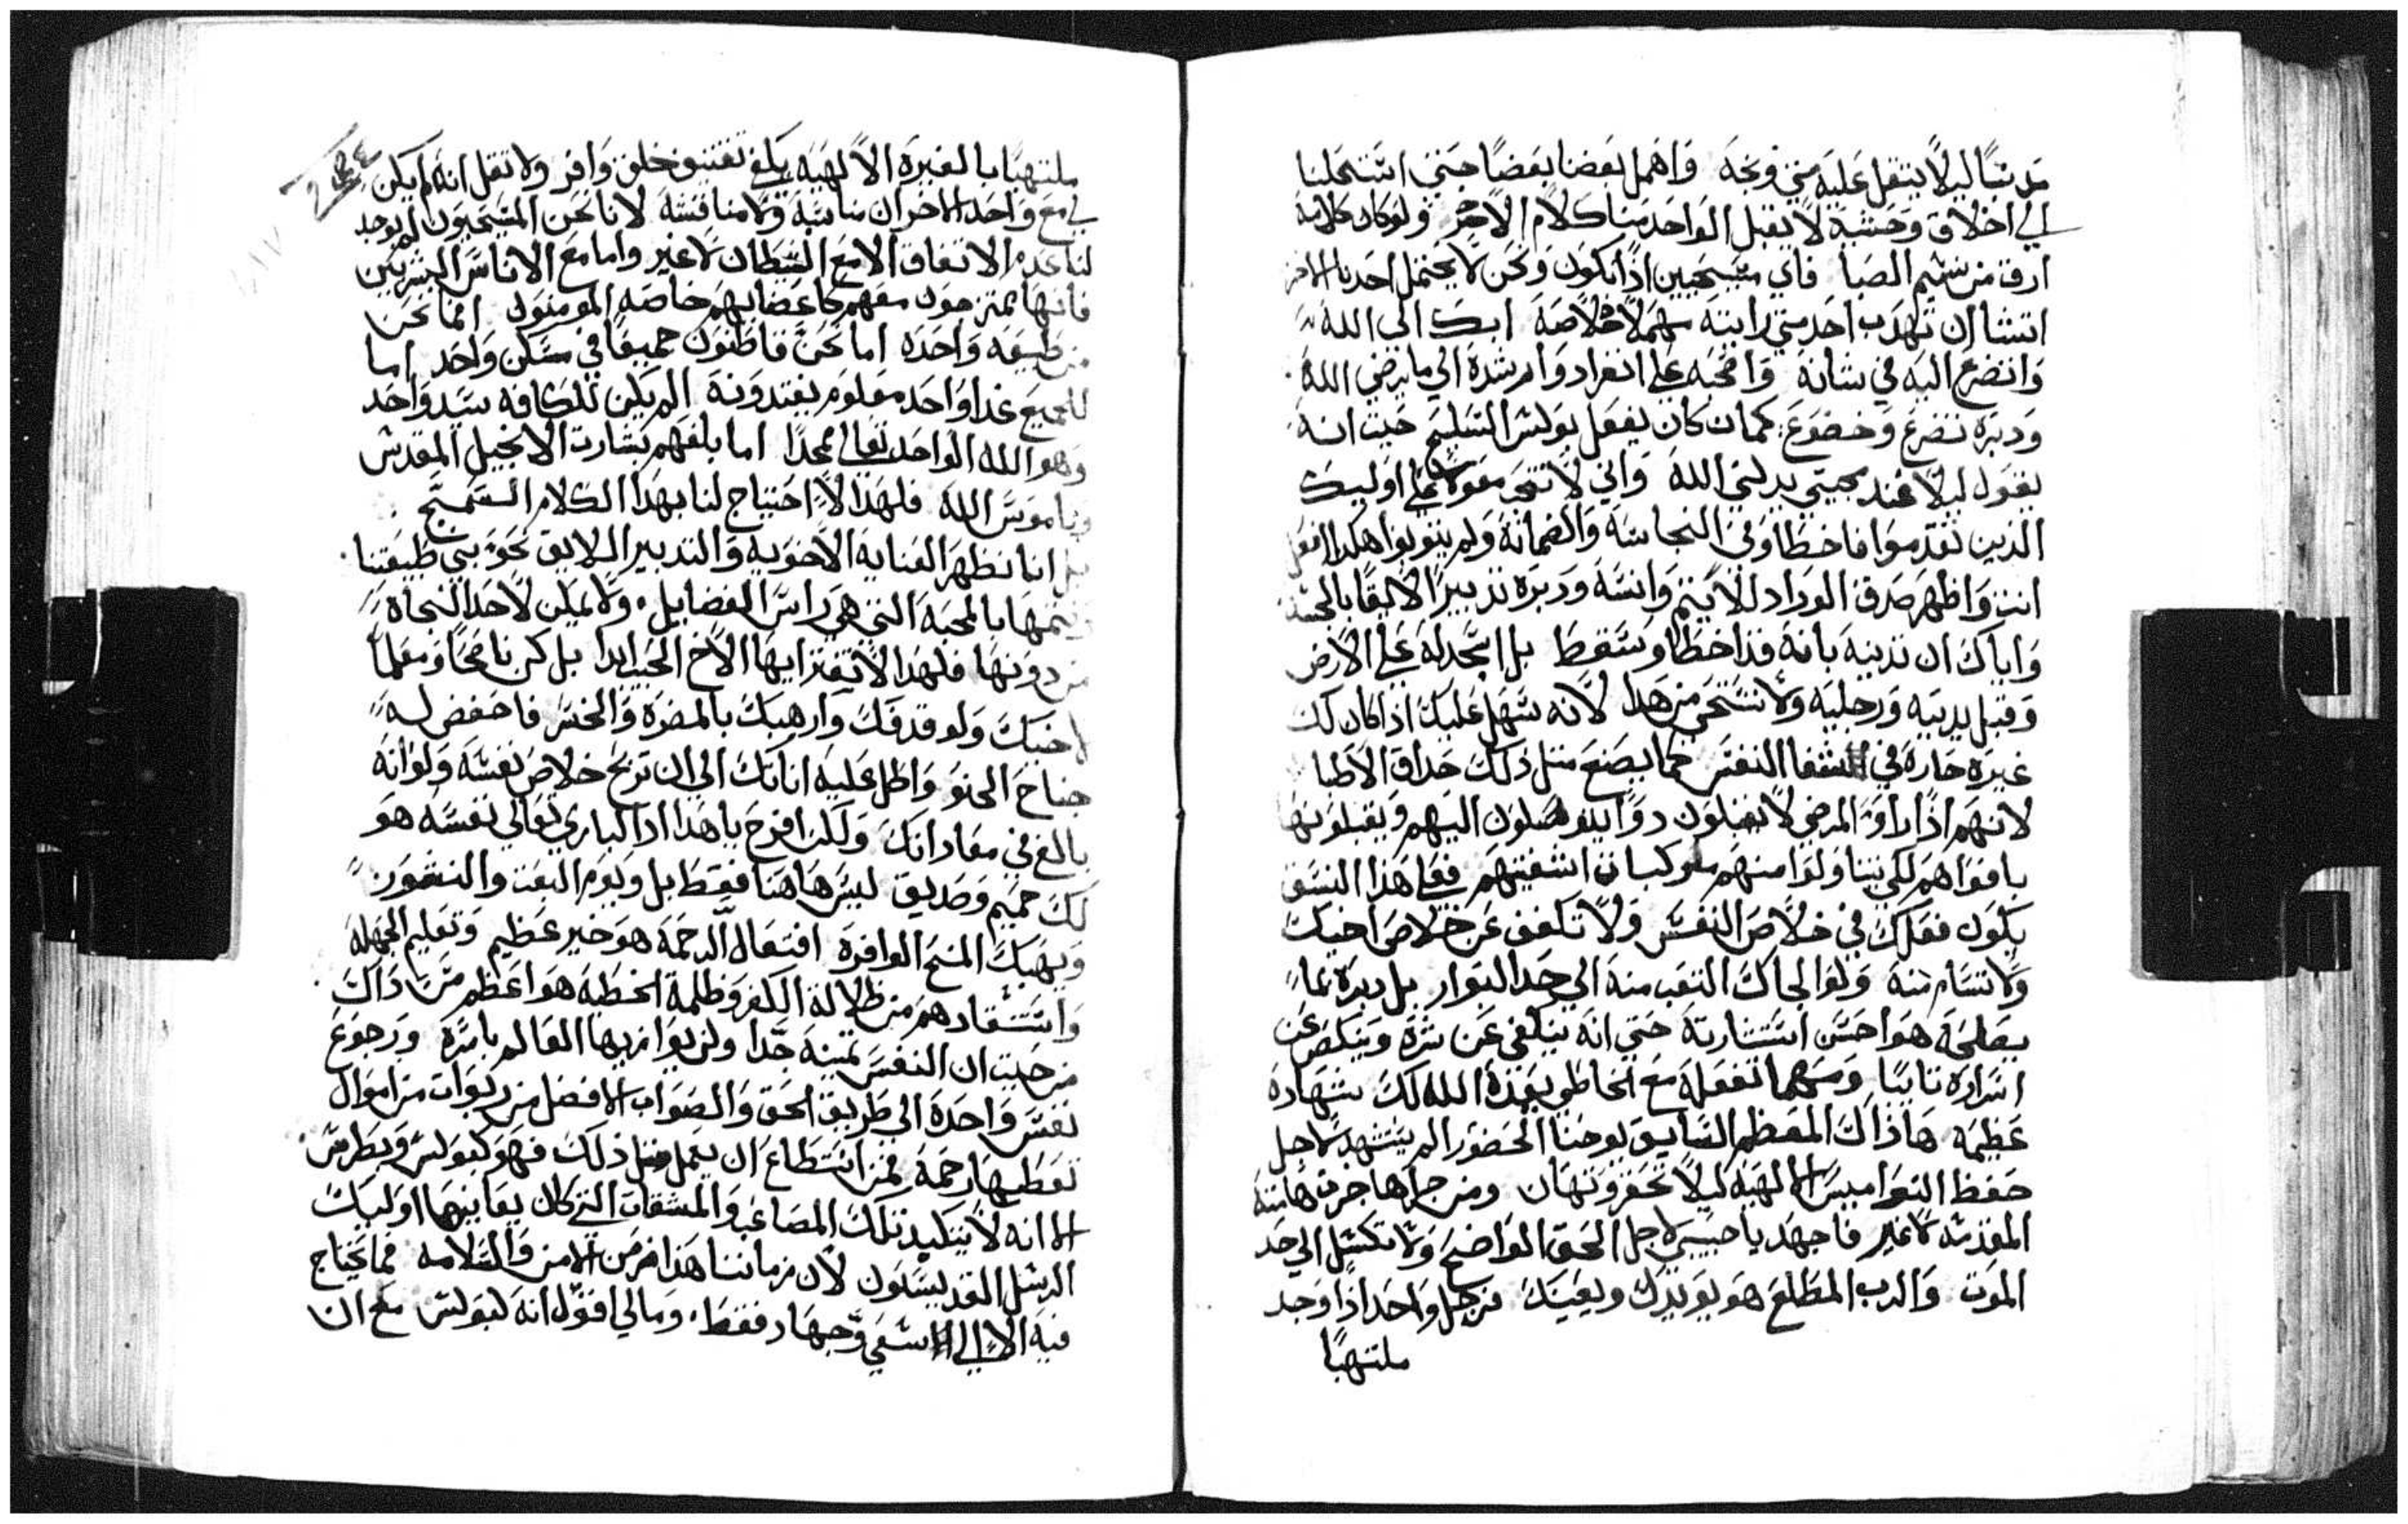 مدنسًا ليلًا يتقل عليه متي وبخه واهمل بعضنا بعضًا حتي استحلينا
الي اخلاق وحشية لا يقبل الواحد منا كلام الاخر ولو كان كلامه
ارق من نسيم الصبا فاي مسيحيين اذًا نكون ونحن لا يحتمل احدنا الاخر
اتشا ان تهدب احد متي رايته مهملًا خلاصه ابك الي الله
واتضرع اليه في شانه وانصحه علي انفراد وارشده الي ما يرضي الله
ودبره بتضرع وخضوع كما ان كان يفعل بولس السليح حيت انه
يقول ليلا عند مجيتي يدلني الله واني لا نتحر مقولا علي اوليك
الذين تقدموا فاخطاو في النجاسة والضمانة ولم يتوبوا هكدا افعل
انت واظهر صدق الوداد للاثيم وانسه ودبره تدبيرًا لايقًا بالحسنه
واياك ان تدينه بانه قد اخطا وسقط بل اسجد له علي الارض
وقبل يديه ورجليه ولا تستحي من هدا لانه سهل عليك اذا كان لك
غيره حاره في شفا النفس كما يصنع متل ذلك حداق الاطبا
لانهم اذا راو المرضي لا يقبلون دوا يتوسلون اليهم ويقبلونهم
بافواههم لكي يتناولوا منهم مركبات اشفيتهم فعلي هذا النسق
يكون فعلك في خلاص النفس ولا تكفف عن خلاص اخيك
ولا تسام منه ولو الجاك التعب منه الي حد البوار بل دبره بما
يصلحه هو احسن استشارته حتي انه ينكفي عن شره وينكص عن
اشراره تايبًا ومهما تفعله مع الخاطي يعده الله لك شهادة
عظيمه هاذاك المعظم السابق يوحنا الحضور الم يستشهد لاجل
حفظ النواميس الالهيه ليلًا تحقر وتهان ومن جراها جرت هامته
المقدسه لا غير فاجهد يا حبيبي لاجل الحق الواضح ولا تكسل الي حد
الموت والرب المطلع هو يويدك ويعينك فرجل واحد اذا وجد
ملتهبًا
ملتهبًا بالغيرة الالهيه يكفي تعتيق خلق وافر ولا تقل انه لم يكن
لي مع واحد الاخر ان سابته ولا منافسه لاننا نحن المسيحيون لم يوجد
لنا عدم الاتفاق الا مع الشيطان لا غير واما مع الاناس البشريين
فانها يمتزجون معهم كاعضايهم خاصه المومنون انما نحن
من طبيعه واحده اما نحن قاطنون جميعًا في مسكن واحد اما
للجميع غدا واحد معلوم يغتدونه الم يكن للكافه سيد واحد
وهو الله الواحد تعالي مجدًا اما بلغهم بشارت الانجيل المقدس
وناموس الله فلهذا لا احتياج لنا بهدا الكلام السمج
بل اننا نظهر العناية الاخويه والتدبير اللايق نحو بني طبيعتنا
ونتمها بالمحبه التي هي راس الفضايل ولا يمكن لاحد النجاة
من دونها فلهدا لا تفتر ايها الاخ الحبيب ابدا بل كن ناصحًا ومعلمًا
لاخيك ولو قدفك وارهبك بالمضره والخسر فاخفض له
جناح الحنو واطل عليه اناتك الي ان تربح خلاص نفسه ولو انه
بالغ في معاداتك ولكن افرح يا هدا اذ الباري تعالي نفسه هو
لك حميم وصديق ليس هاهنا فقط بل ويوم البعت والنشور
ويهبك المنح الوافرة افتعال الرحمة هو خير عظيم وتعليم الجهله
واستنقادهم من ظلالة الكفر وظلمة الخطية هو اعظم من داك
من حيت ان النفس تمينه جدًا ولن يوازيها العالم باسره ورجوع
نفس واحدة الي طريق الحق والصواب الافضل من ربوات من اموال
تعطيها رحمة فمن استطاع ان يعمل متل ذلك فهو كبولس وبطرس
الا انه لا يتكبد تلك المصاعب والمشقات التي كان يعانيها اوليك
الرسل القديسون لان زماننا هذا زمن الامن والسلامه فما يحتاج
فيه الا الي سعي وجهاد فقط وما لي اقول انه كبولس مع ان